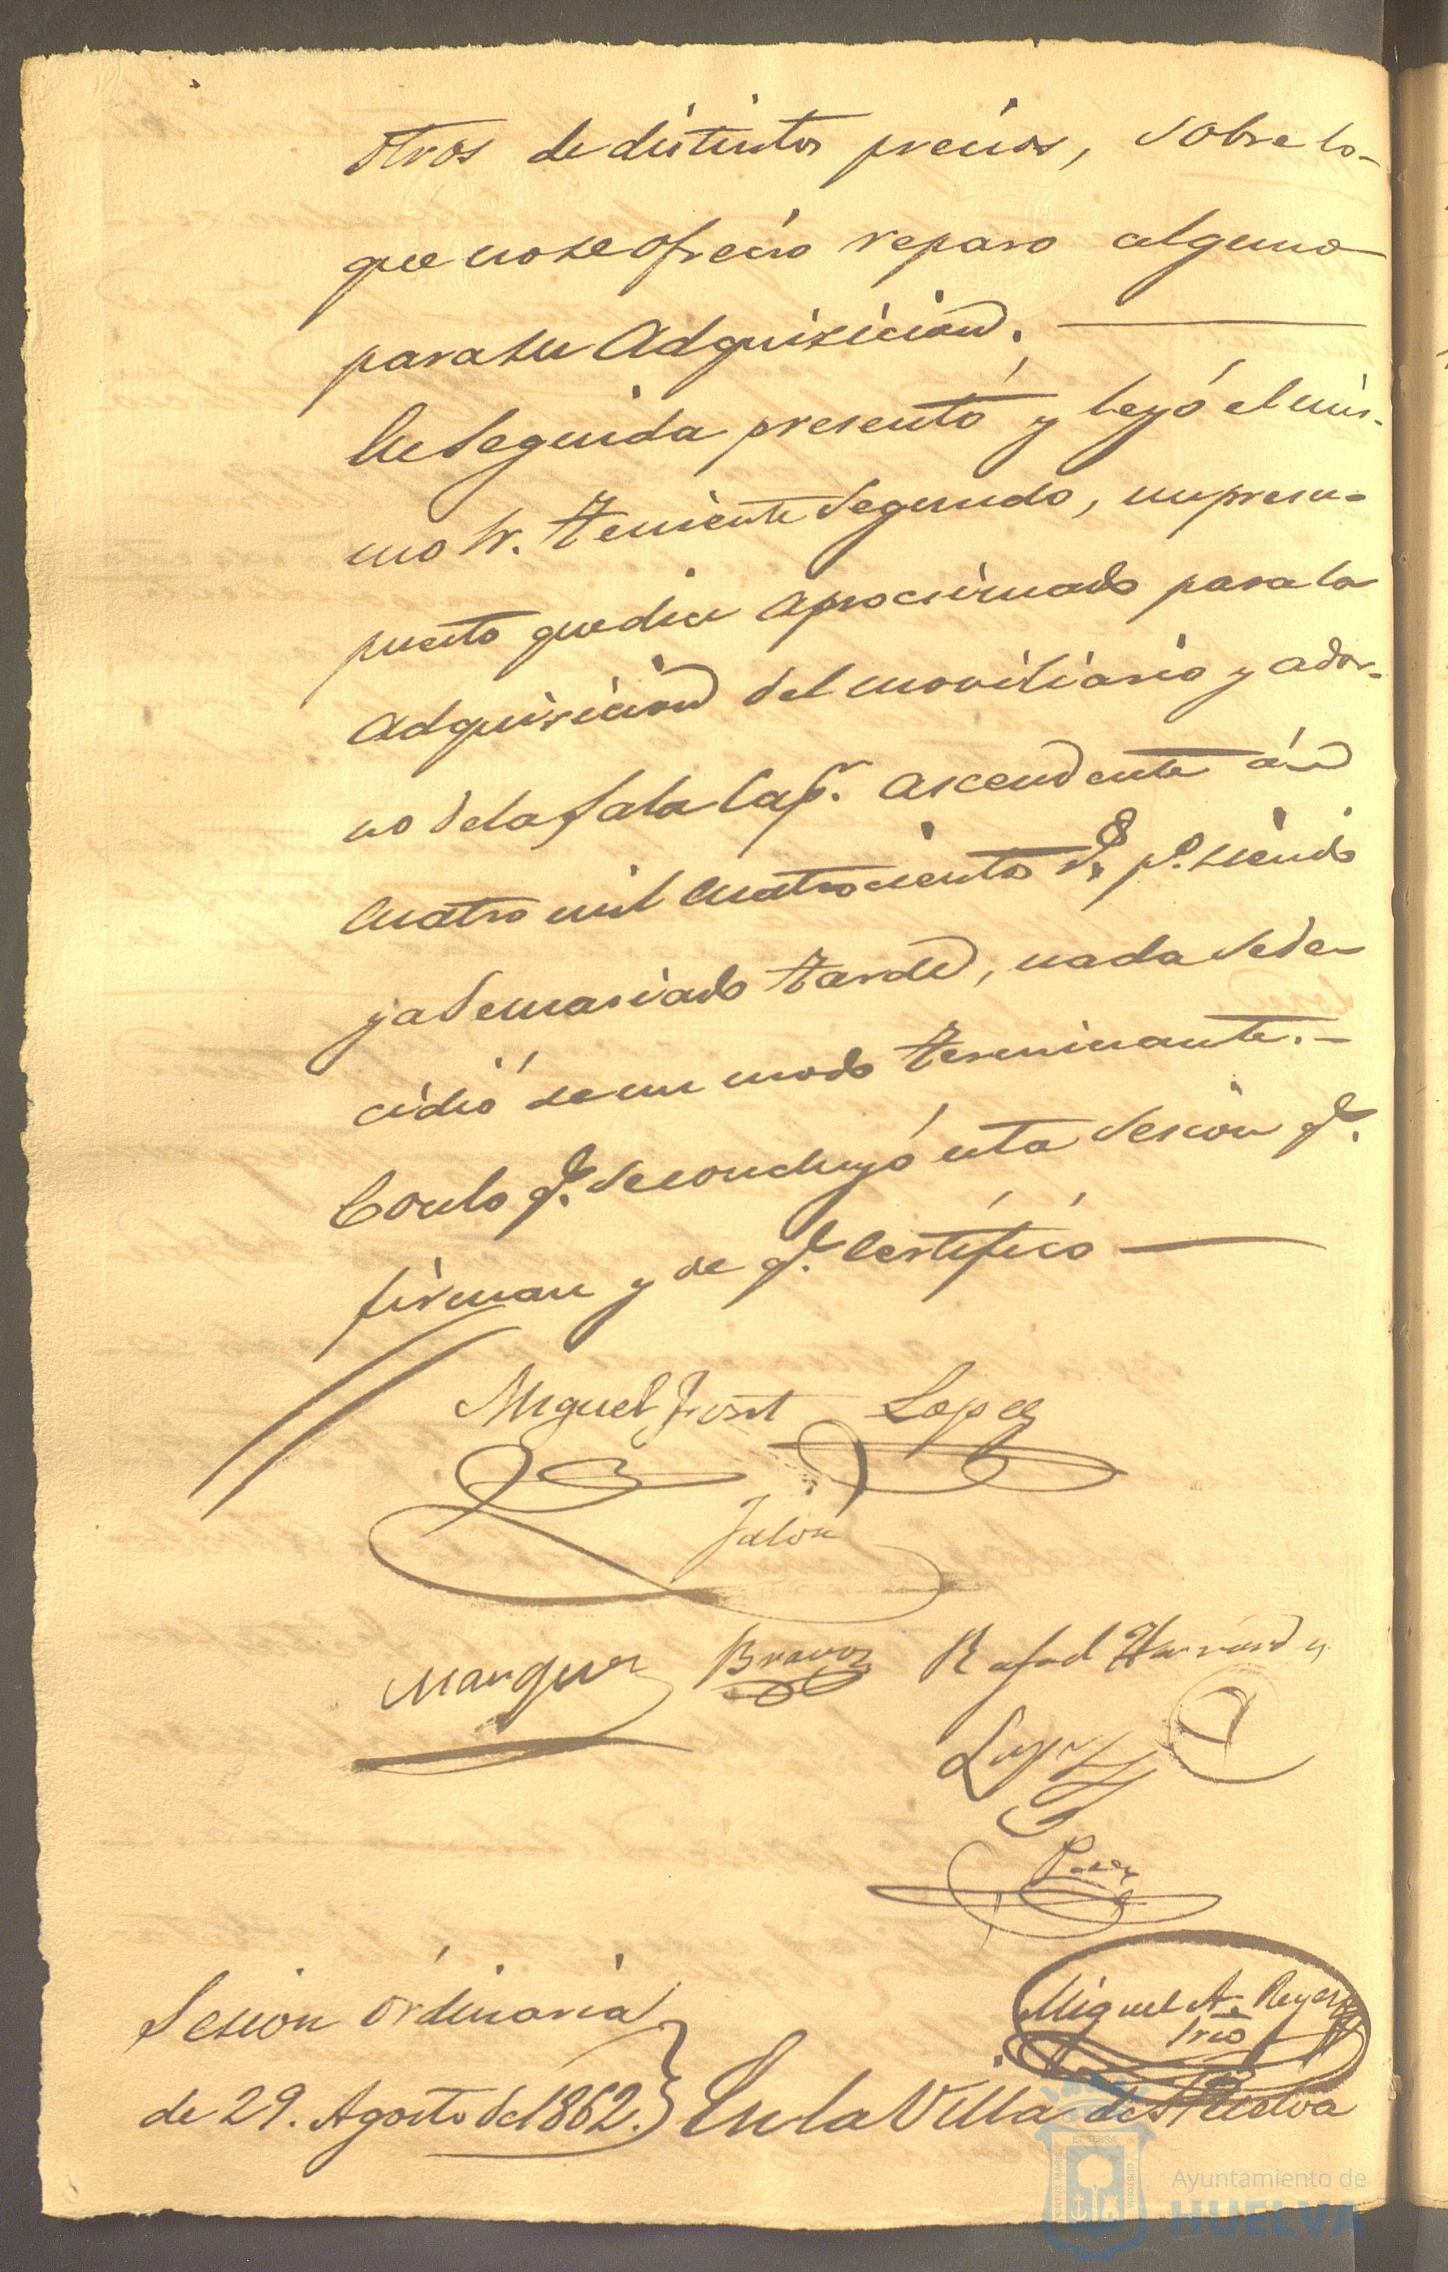 otros de distintos precios, sobre lo-
que no se ofrecio reparo alguno
para su Adquisicion.
En Seguida presentó y leyó el mis-
mo Sr. Teniente Segundo, un presu-
puesto que dice aprocsimado para la
Adquisicion del moviliario y ador-
no de la Sala Capr. ascendente á
cuatro mil cuatrocientos rs. pº. siendo
ya demaciado tarde, nada se de-
cidió de un modo terminante.-
Con lo qe. se concluyó esta Sesion qe.
firman y de qe. Certífico
Miguel Lopez
Jalon
Marquez Bravo Rafael Hernandez
Lopez
Miguel A. Reyes
Srio
Sesion órdinaria
de 29. Agosto del 1862. En la Villa de Huelva
PORTUS MARIS ET TERRA CUSTODIA
Ayuntamiento de
HUELVA